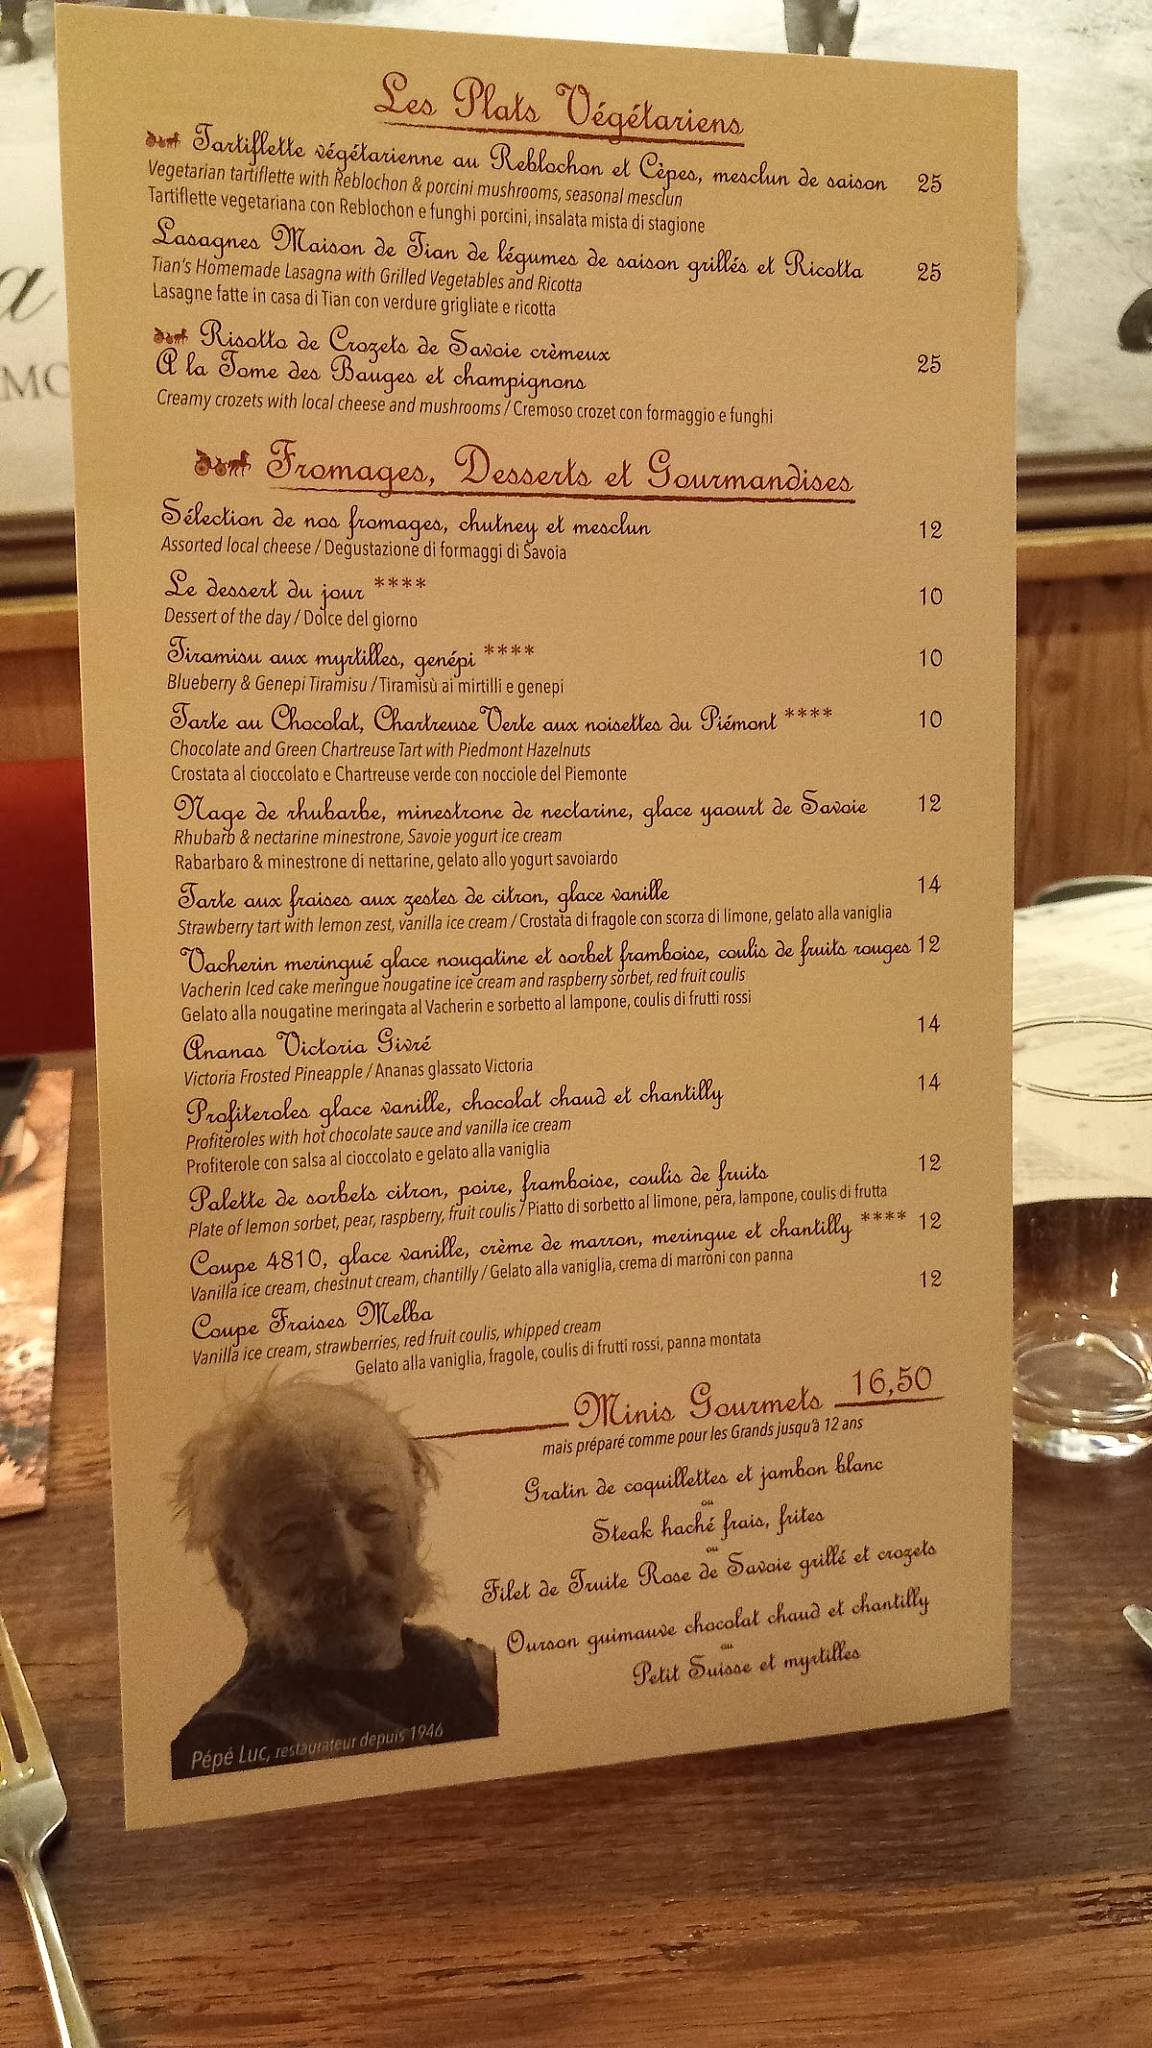 Les Plats Végétariens
Tartiflette végétarienne au Reblochon et Cèpes, mesclun de saison 25
Vegetarian tartiflette with Reblochon & porcini mushrooms, seasonal mesclun
Tartiflette vegetariana con Reblochon e funghi porcini, insalata mista di stagione
Lasagnes Maison de Tian de légumes de saison grillés et Ricotta 25
Tian's Homemade Lasagna with Grilled Vegetables and Ricotta
Lasagne fatte in casa di Tian con verdure grigliate e ricotta
Risotto de Crozets de Savoie crèmeux
A la Tome des Bauges et champignons 25
Creamy crozets with local cheese and mushrooms / Cremoso crozet con formaggio e funghi
Fromages, Desserts et Gourmandises
Sélection de nos fromages, chutney et mesclun 12
Assorted local cheese / Degustazione di formaggi di Savoia
Le dessert du jour **** 10
Dessert of the day / Dolce del giorno
Tiramisu aux myrtilles, genépi **** 10
Blueberry & Genepi Tiramisu / Tiramisù ai mirtilli e genepi
Tarte au Chocolat, Chartreuse Verte aux noisettes du Piémont **** 10
Chocolate and Green Chartreuse Tart with Piedmont Hazelnuts
Crostata al cioccolato e Chartreuse verde con nocciole del Piemonte
Nage de rhubarbe, minestrone de nectarine, glace yaourt de Savoie 12
Rhubarb & nectarine minestrone, Savoie yogurt ice cream
Rabarbaro & minestrone di nettarine, gelato allo yogurt savoiardo
Tarte aux fraises aux zestes de citron, glace vanille 14
Strawberry tart with lemon zest, vanilla ice cream / Crostata di fragole con scorza di limone, gelato alla vaniglia
Vacherin meringué glace nougatine et sorbet framboise, coulis de fruits rouges 12
Vacherin Iced cake meringue nougatine ice cream and raspberry sorbet, red fruit coulis
Gelato alla nougatine meringata al Vacherin e sorbetto al lampone, coulis di frutti rossi
Ananas Victoria Givré 14
Victoria Frosted Pineapple / Ananas glassato Victoria
Profiteroles glace vanille, chocolat chaud et chantilly 14
Profiteroles with hot chocolate sauce and vanilla ice cream
Profiterole con salsa al cioccolato e gelato alla vaniglia
Palette de sorbets citron, poire, framboise, coulis de fruits 12
Plate of lemon sorbet, pear, raspberry, fruit coulis / Piatto di sorbetto al limone, pera, lampone, coulis di frutta
Coupe 4810, glace vanille, crème de marron, meringue et chantilly **** 12
Vanilla ice cream, chestnut cream, chantilly / Gelato alla vaniglia, crema di marroni con panna
Coupe Fraises Melba 12
Vanilla ice cream, strawberries, red fruit coulis, whipped cream
Gelato alla vaniglia, fragole, coulis di frutti rossi, panna montata
Minis Gourmets 16,50
mais préparé comme pour les Grands jusqu'à 12 ans
Gratin de coquillettes et jambon blanc
ou
Steak haché frais, frites
ou
Filet de Truite Rose de Savoie grillé et crozets
Ourson guimauve chocolat chaud et chantilly
ou
Petit Suisse et myrtilles
Pépé Luc, restaurateur depuis 1946
a
MO